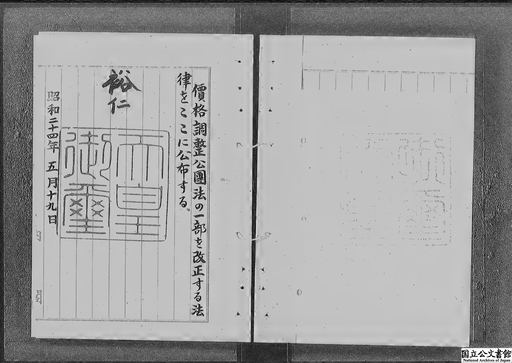 價格調整公團法の一部を改正する法
律をここに公布する、
裕仁
天皇
御璽
昭和二十四年 五月十九日
国立公文書館
National Archives of Japan